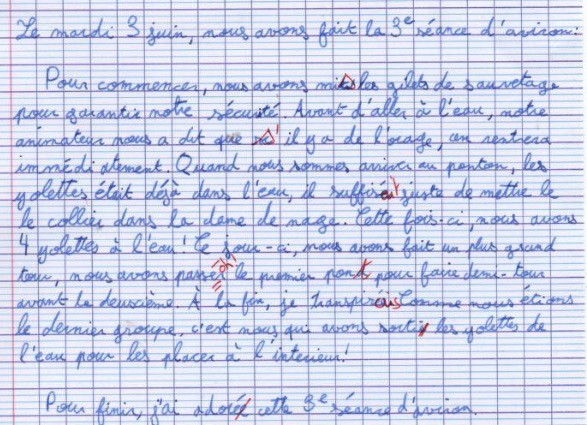 Le mardi 3 juin, nous avons fait la 3e séance d'aviron:
Pour commencer, nous avons mis les gilets de sauvetage
pour garantir notre sécurité. Avant d'aller à l'eau, notre
animateur nous a dit que s' il y a de l'orage, on rentrera
immédiatement. Quand nous sommes arriver au ponton, les
yolettes était déjà dans l'eau, il suffisait juste de mettre le
le collier dans la dame de nage. Cette fois-ci, nous avons
4 yolettes à l'eau! Ce jour-ci, nous avons fait un plus grand
tour, nous avons passer le premier pont pour faire demi-tour
avant le deuxième. À la fin, je transpirais comme nous étions
le dernier groupe, c'est nous qui avons sorti les yolettes de
l'eau pour les placer à l'interieur!
Pour finir, j'ai adoré cette 3e séance d'aviron.